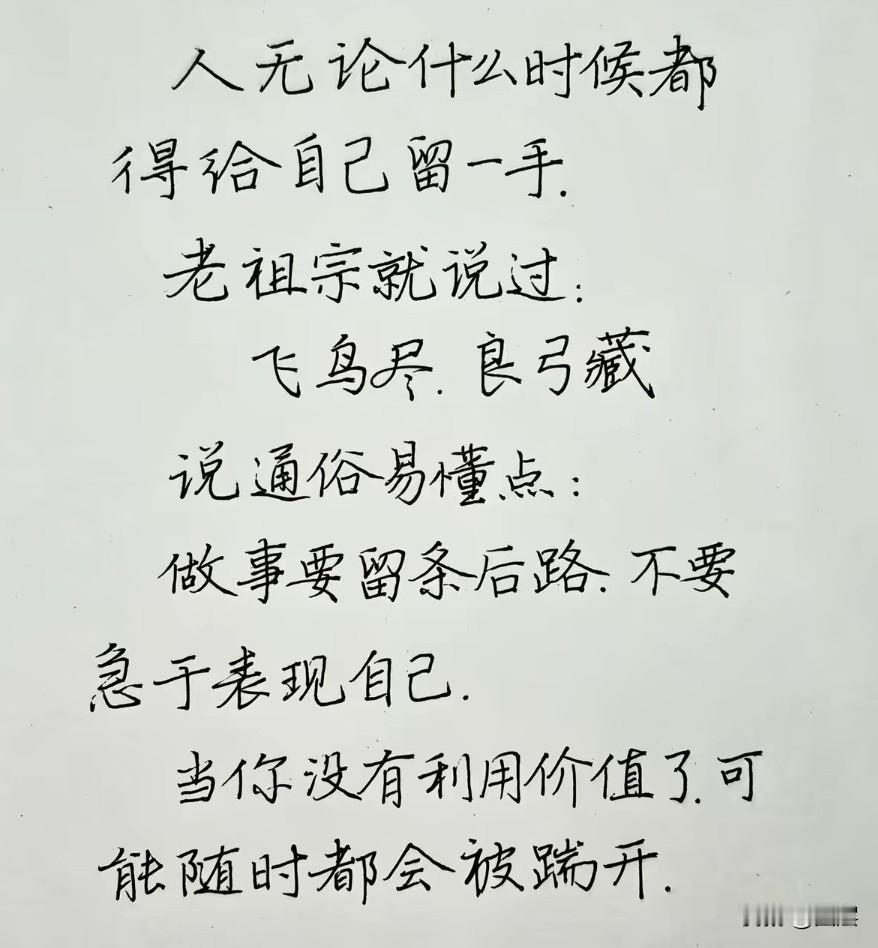 人无论什么时候都
得给自己留一手.
老祖宗就说过:
飞鸟尽.良弓藏
说通俗易懂点:
做事要留条后路.不要
急于表现自己.
当你没有利用价值了.可
能随时都会被踹开.